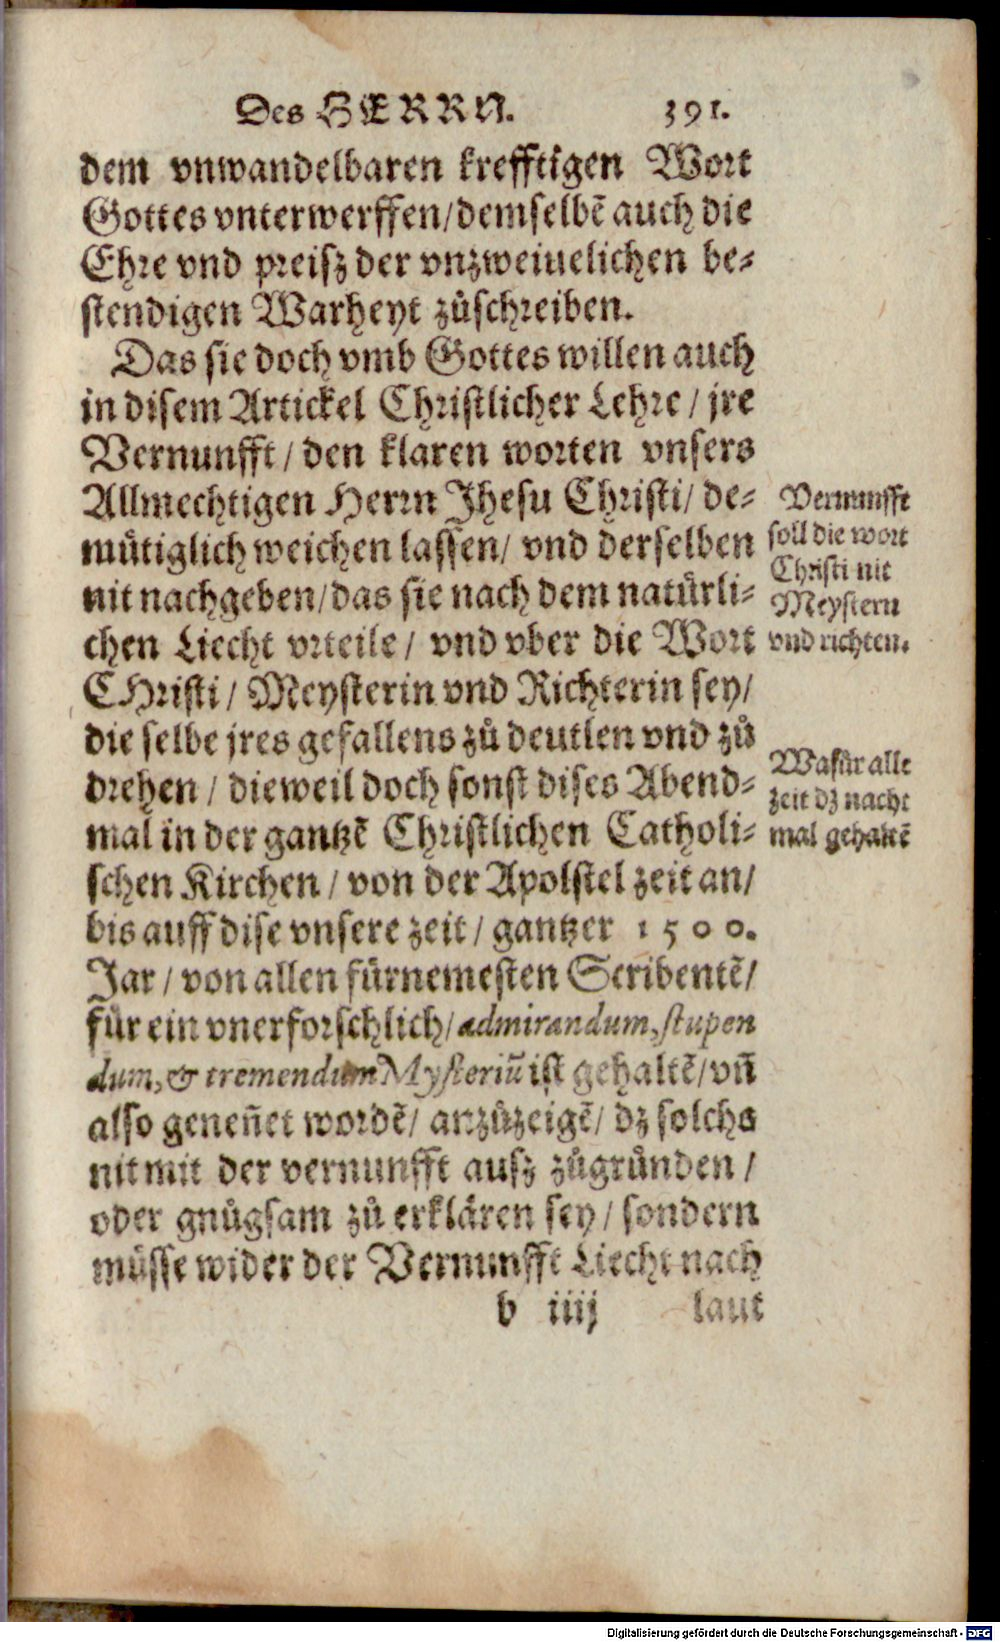 Des HERRN. 391.
dem vnwandelbaren krefftigen Wort
Gottes vnterwerffen/demselbẽ auch die
Ehre vnd preisz der vnzweiuelichen be⸗
stendigen Warheyt zůschreiben.
Das sie doch vmb Gottes willen auch
in disem Artickel Christlicher Lehre / jre
Vernunfft / den klaren worten vnsers
Allmechtigen Herrn Jhesu Christi/ de⸗
mütiglich weichen lassen/ vnd derselben
nit nachgeben/das sie nach dem natürli⸗
chen Liecht vrteile / vnd vber die Wort
CHristi / Meysterin vnd Richterin sey/
die selbe jres gefallens zů deutlen vnd zů
drehen / dieweil doch sonst dises Abend⸗
mal in der gantzẽ Christlichen Catholi⸗
schen Kirchen / von der Apolstel zeit an/
bis auff dise vnsere zeit / gantzer 1500.
Jar / von allen fürnemesten Scribentẽ/
für ein vnerforschlich/ admirandum, stupen
dum, & tremendum Mysteriũ ist gehaltẽ/ vñ
also geneñet wordẽ/ anzůzeigẽ/ dz solchs
nit mit der vernunfft ausz zůgründen /
oder gnůgsam zů erklären sey / sondern
müsse wider der Vernunfft Liecht nach
b iiij laut
Vernunfft
soll die wort
Christi nit
Meystern
vnd richten.
Wafür alle
zeit dz nacht
mal gehaltẽ
Digitalisierung gefördert durch die Deutsche Forschungsgemeinschaft - DFG